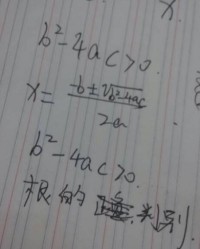 x.
b²-4ac>0.
x= (-b±√b²-4ac)/2a
b²-4ac>0.
根的 判别